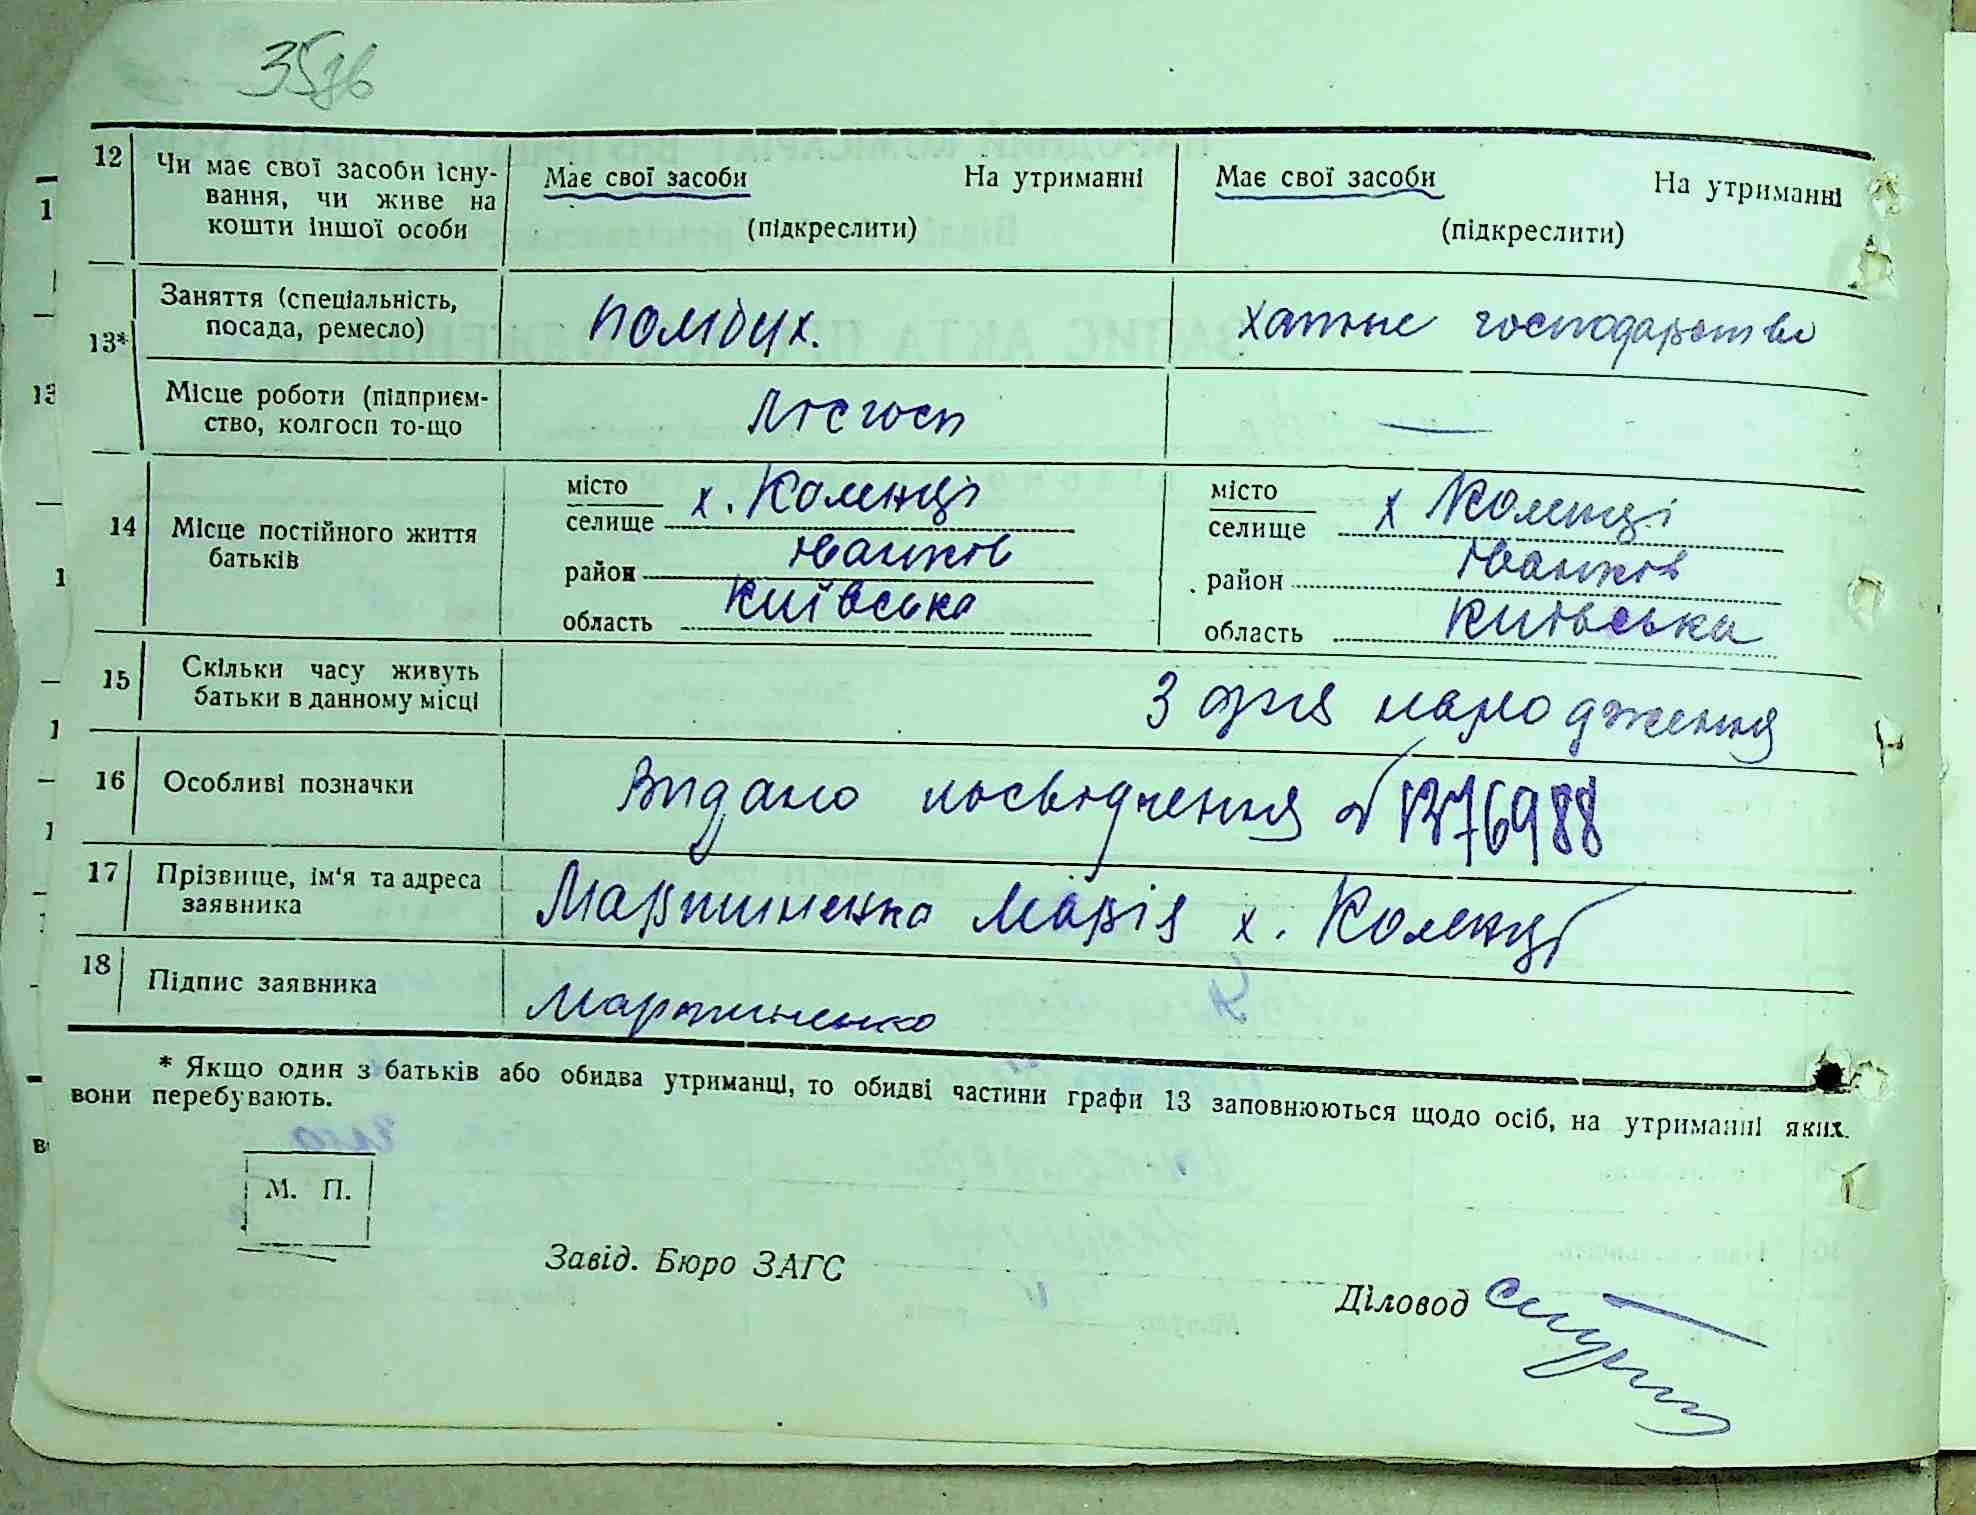 35зв
12 Чи має свої засоби існу-
вання, чи живе на
кошти іншої особи
Має свої засоби На утриманні
(підкреслити)
Має свої засоби На утриманні
(підкреслити)
13* Заняття (спеціальність,
посада, ремесло)
помбух.
хатнє господарство
Місце роботи (підприєм-
ство, колгосп то-що
Лісгосп
—
14 Місце постійного життя
батьків
місто
селище х. Коленці
район Іванків
область Київська
місто
селище х Коленці
район Іванків
область Київська
15 Скільки часу живуть
батьки в данному місці
З дня народження
16 Особливі позначки
Видано посвідчення
17 Прізвище, ім'я та адреса
заявника
Мартиненко Марія х. Коленці
18 Підпис заявника
Мартиненко
* Якщо один з батьків або обидва утриманці, то обидві частини графи 13 заповнюються щодо осіб, на утриманні яких
вони перебувають.
М. П.
Завід. Бюро ЗАГС
Діловод